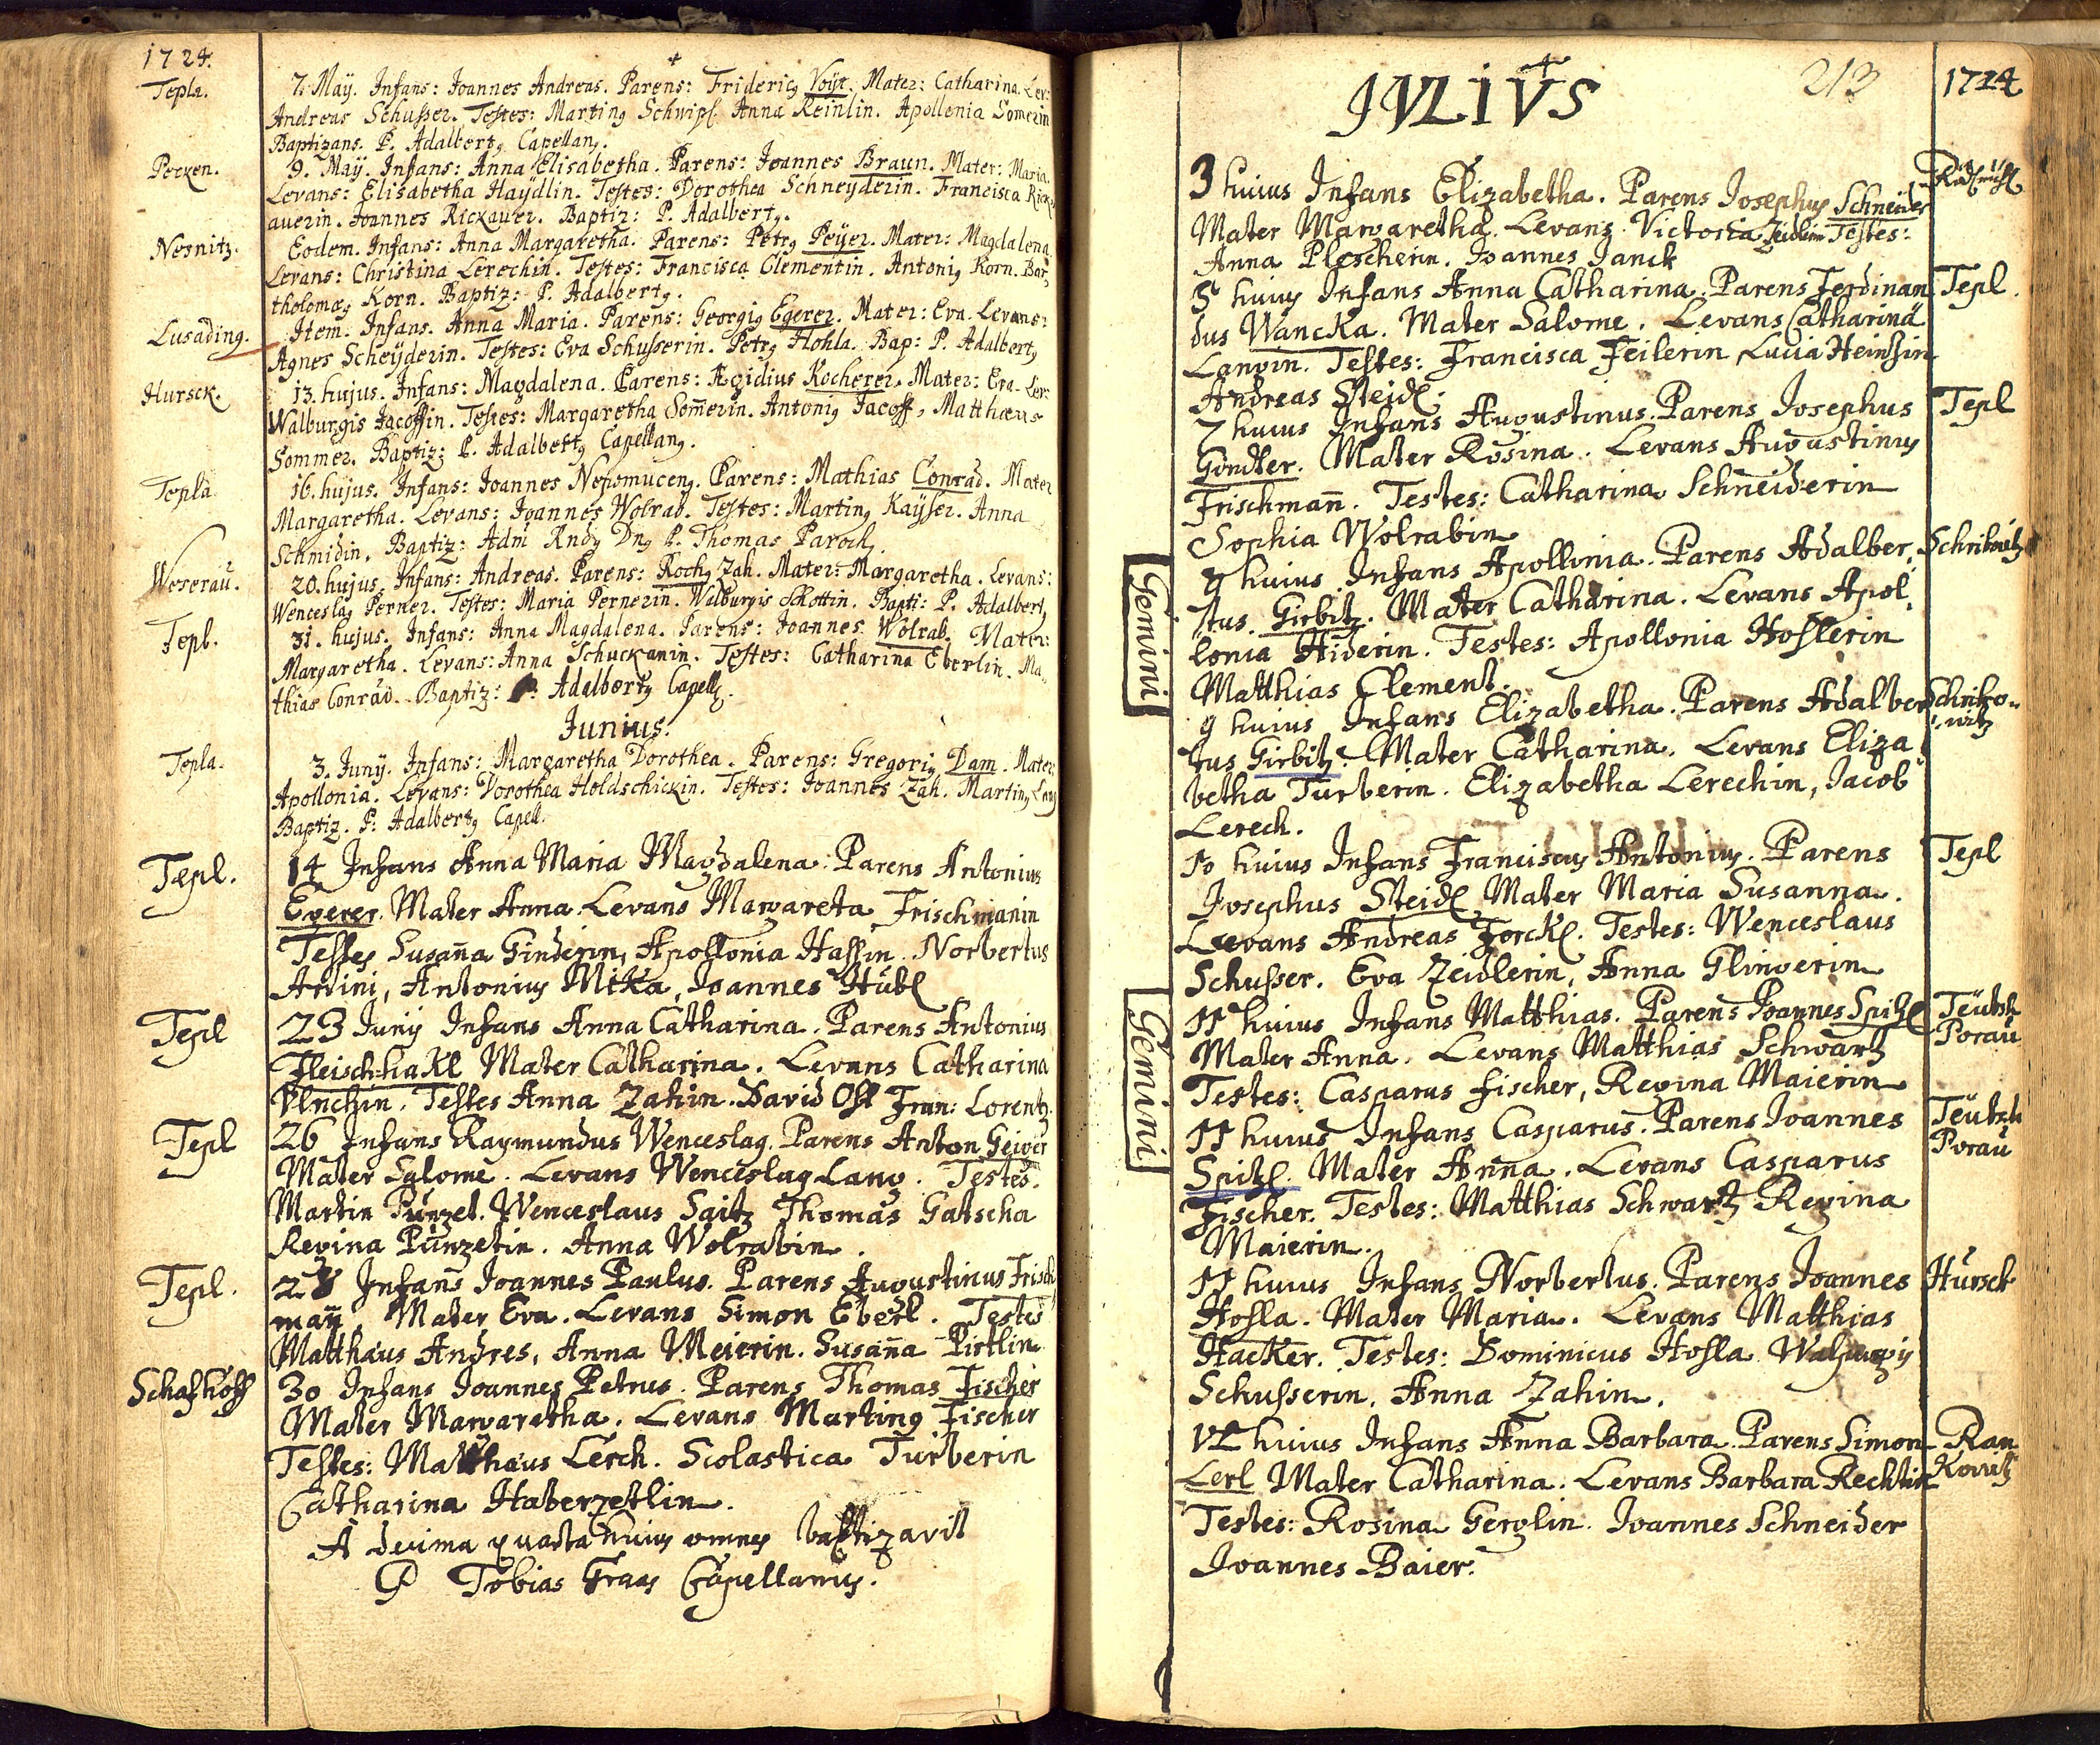 1724.
Tepla. 7. Maÿ. Infans: Joannes Andreas. Parens: Frideric9 Voÿt. Mater: Catharina. Lev:
Andreas Schusser. Testes: Martin9 Schwipl. Anna Reinlin. Apollonia Somerin
Baptizans. P. Adalbert9 Capellan9.
Pecken. 9. Maÿ. Infans: Anna Elisabetha. Parens: Joannes Braun. Mater: Maria.
Levans: Elisabetha Haÿdlin. Testes: Dorothea Schneyderin. Francisca Rick
auerin. Joannes Rickauer. Baptiz: P. Adalbert9.
Nesnitz. Eodem. Infans: Anna Margaretha. Parens: Petr9 Peÿer. Mater: Magdalena.
Levans: Christina Lerechin. Testes: Francisca Clementin. Antoni9 Korn. Bar
tholomæ9 Korn. Baptiz: P. Adalbert9.
Lusading. Item. Infans. Anna Maria. Parens: Georgi9 Egerer. Mater: Eva. Levans:
Agnes Scheÿderin. Testes: Eva Schusserin. Petr9 Hohla. Bap: P. Adalbert9
Hursck. 13. hujus. Infans: Magdalena. Parens: Ægidius Kocherer. Mater: Eva. Lev:
Walburgis Jacoffin. Testes: Margaretha Somerin. Antoni9 Jacoff, Matthæus
Sommer. Baptiz: P. Adalbert9 Capellan9.
Tepla 16. hujus. Infans: Joannes Nepomucen9. Parens: Mathias Conrad. Mater
Margaretha. Levans: Joannes Wolrab. Testes: Martin9 Kaÿser. Anna
Schmidin. Baptiz: Adm Rnd9 Dn9 P. Thomas Paroch9.
Weserau. 20. hujus. Infans: Andreas. Parens: Roch9 Zah. Mater: Margaretha. Levans:
Wenceslag Perner. Testes: Maria Pernerin. Walburgis Schottin. Bapti: P. Adalbert9
Tepl. 31. hujus. Infans: Anna Magdalena. Parens: Joannes Wolrab. Mater:
Margaretha. Levans: Anna Schuckanin. Testes: Catharina Eberlin. Ma
thias Conrad. Baptiz: P. Adalbert9 Capell9.
Junius.
Tepla. 3. Junÿ. Infans: Margaretha Dorothea. Parens: Gregori9 Dam. Mater
Apollonia. Levans: Dorothea Holdschickin. Testes: Joannes Zah. Martin9 Lang
Baptiz. P: Adalbert9 Capell.
Tepl. 14 Infans Anna Maria Magdalena. Parens Antonius
Egerer. Mater Anna. Levans Margareta Frischmanin
Testes Susana Ginderin, Apollonia Hassin. Norbertus
Ardini, Antonius Mika, Joannes Hübl
Tepl 23 Junÿ Infans Anna Catharina. Parens Antonius
Fleischhakl Mater Catharina. Levans Catharina
Vlnchin. Testes Anna Zahin. David Osl Fran: Lorentz.
Tepl 26 Infans Raymundus Wenceslag. Parens Anton Geiger
Mater Salome. Levans Wenceslag Lang. Testes.
Martin Punzet. Wenceslaus Saitz Thomas Gatscha
Regina Punzetin. Anna Wolrabin.
Tepl. 28 Infans Joannes Paulus. Parens Augustinus Frisch
man. Mater Eva. Levans Simon Eberl. Testes
Matthæus Andres, Anna Meierin. Susana Pirtlin
Schafhöff 30 Infans Joannes Petrus. Parens Thomas Fischer
Mater Margaretha. Levans Martin9 Fischer
Testes: Matthæus Lerch. Scolastica Turberin
Catharina Haberzetlin.
A decima quarta huius omnes baptizavit
P Tobias Graas Capellanus.
213
1724
JVLIVS
3 huius Infans Elizabetha. Parens Josephus Schneider
Mater Margaretha. Levans Victoria Zeidlerin Testes:
Anna Plescherin. Joannes Janck
5 huius Infans Anna Catharina. Parens Ferdinan Tepl.
dus Wancka. Mater Salome. Levans Catharina
Langin. Testes: Francisca Feilerin Lucia Heinzin
Andreas Steidl.
7 huius Infans Augustinus. Parens Josephus Tepl
Gindter. Mater Rosina. Levans Augustinus
Frischman. Testes: Catharina Schneiderin
Sophia Wolrabin
Gemini
9 huius Infans Apollonia. Parens Adalber
tus Girbitz. Mater Catharina. Levans Apol
lonia Hiderin. Testes: Apollonia Hoslerin
Matthias Clement.
9 huius Infans Elizabetha. Parens Adalber Schriko
witz
tus Girbitz. Mater Catharina. Levans Eliza
betha Turberin. Elizabetha Lerechin, Jacob
Lerech.
10 huius Infans Franciscus Antonius. Parens Tepl
Josephus Steidl Mater Maria Susanna.
Levans Andreas Forckl. Testes: Wenceslaus
Schusser. Eva Zeidlerin, Anna Glingerin
Gemini
11 huius Infans Matthias. Parens Joannes Spitzl Teütsch
Porau
Mater Anna. Levans Matthias Schwartz
Testes: Casparus Fischer, Regina Maierin
11 huius Infans Casparus. Parens Joannes Teütsch
Porau
Spitzl. Mater Anna. Levans Casparus
Fischer. Testes: Matthias Schwartz Regina
Maierin.
11 huius Infans Norbertus. Parens Joannes Hursck
Hosla. Mater Maria. Levans Matthias
Hacker. Testes: Dominicus Hosla
Schusserin. Anna Zahin.
huius Infans Anna Barbara. Parens Simon Ran
Kowitz
Lerl Mater Catharina. Levans Barbara Rechtin
Testes: Rosina Gerglin. Joannes Schneider
Joannes Baier.